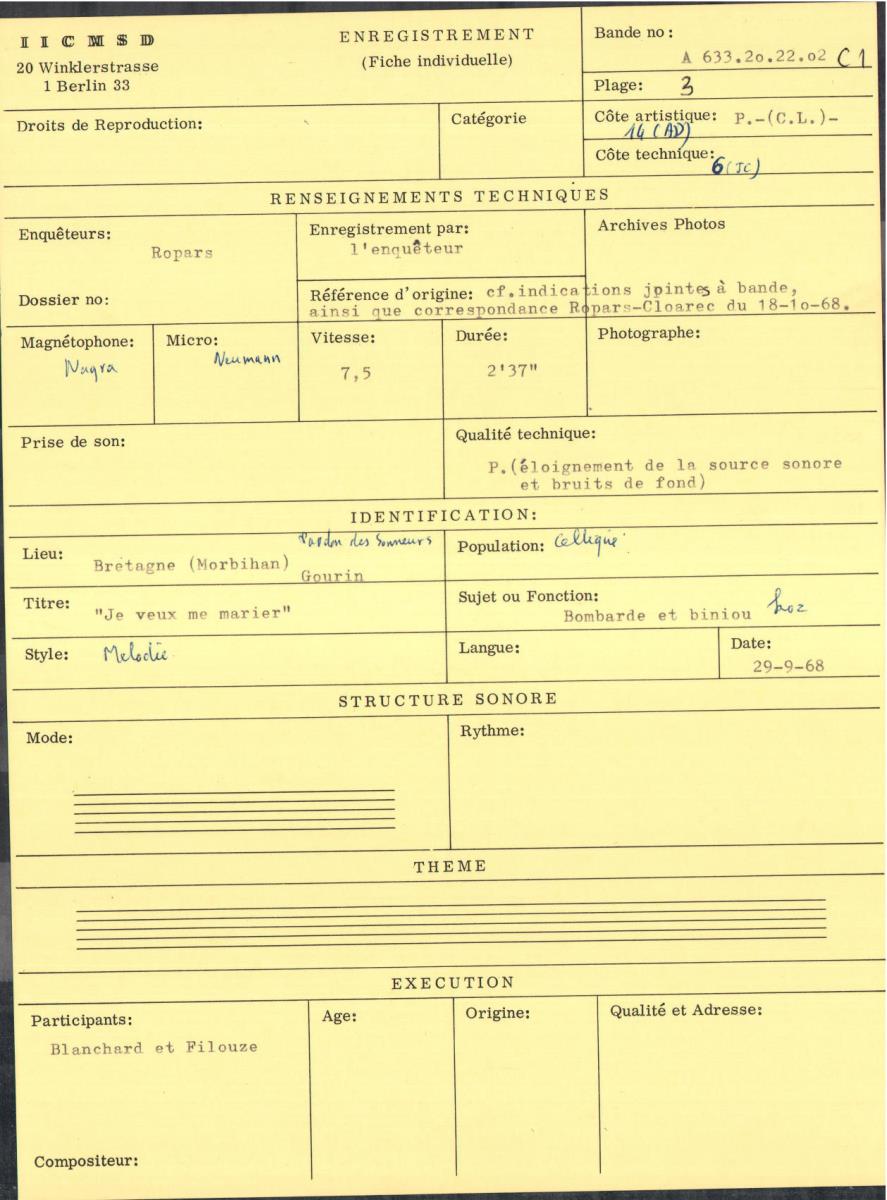 IICMSD
20 Winklerstrasse
1 Berlin 33
ENREGISTREMENT
(Fiche individuelle)
Bande no:
A 633.2o.22.o2 C1
Plage: 3
Droits de Reproduction:
Catégorie
Côte artistique: P.-(C.L.)-
14 (AD)
Côte technique:
6 (JC)
RENSEIGNEMENTS TECHNIQUES
Enquêteurs:
Ropars
Dossier no:
Enregistrement par:
l'enquêteur
Archives Photos
Référence d'origine: cf.indications jointes à bande,
ainsi que correspondance Ropars-Cloarec du 18-1o-68.
Magnétophone:
Nagra
Micro:
Neumann
Vitesse:
7,5
Durée:
2'37"
Photographe:
Prise de son:
Qualité technique:
P.(éloignement de la source sonore
et bruits de fond)
IDENTIFICATION:
Lieu:
Bretagne (Morbihan)
Pardon des Sonneurs
Gourin
Population: Celtique
Titre:
"Je veux me marier"
Sujet ou Fonction:
Bombarde et biniou koz
Style: Melodie
Langue:
Date:
29-9-68
STRUCTURE SONORE
Mode:
Rythme:
THEME
EXECUTION
Participants:
Blanchard et Filouze
Age:
Origine:
Qualité et Adresse:
Compositeur: